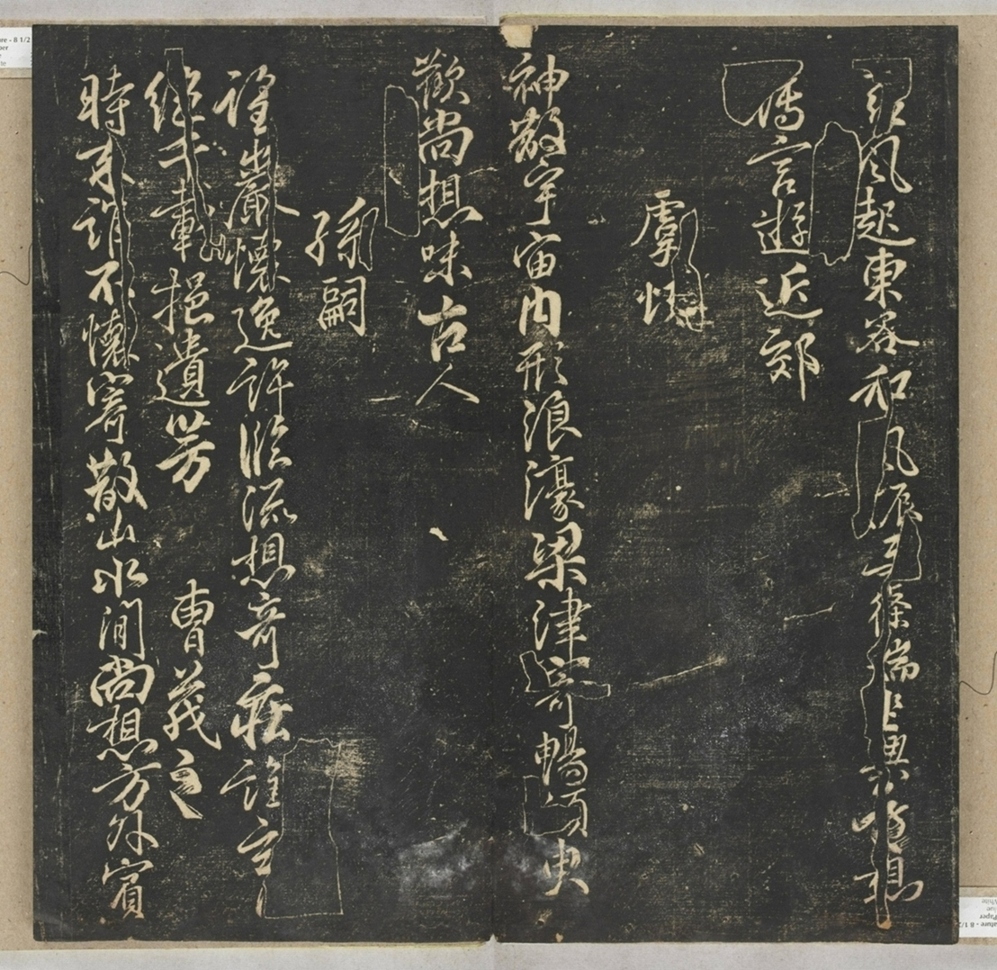 温風起東谷和風振柔條端坐興遠想
薄言遊近郊
虞悦
神散宇宙内形浪濠梁津寄暢須臾
歡尚想味古人
孫嗣
望巖懷逸許臨流想奇莊誰云
絶千載挹遺芳　曹茂之
時來誰不懷寄散山水間尚想方外賓